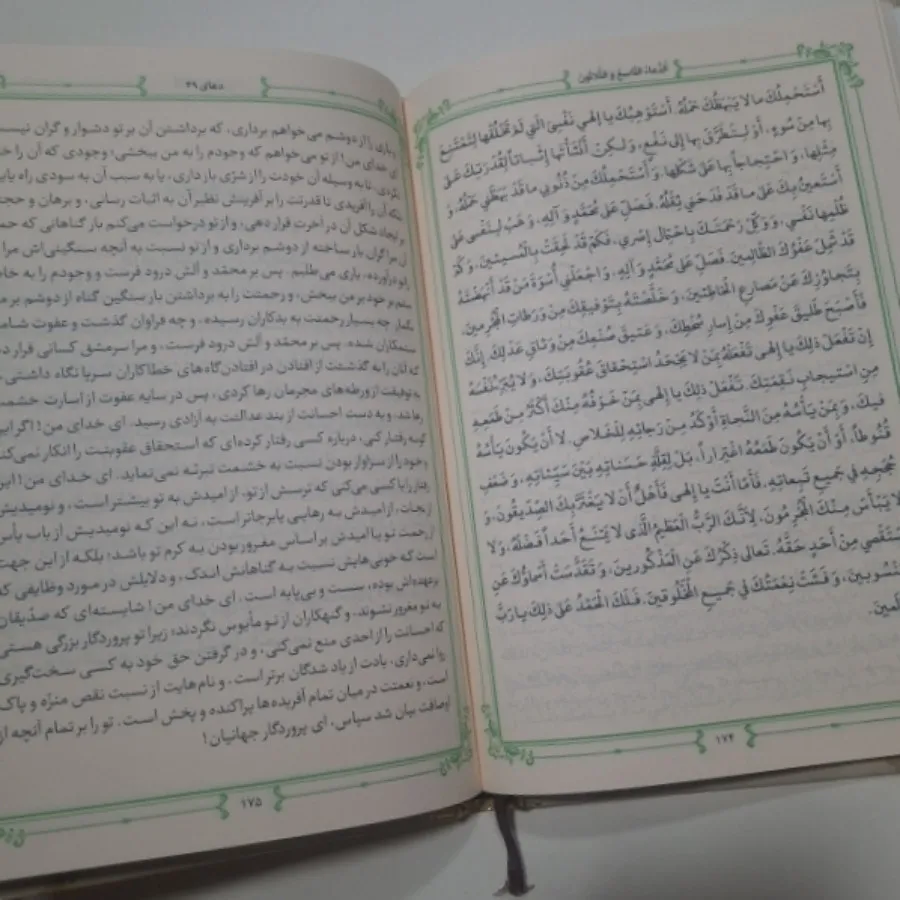 الدّعاء التّاسع و الثّلاثون
أَسْتَحْمِلُكَ مَا لَا يَبْهَظُكَ حَمْلُهُ. أَسْتَوْهِبُكَ يَا إِلَهِي نَفْسِيَ الَّتِي لَمْ تَخْلُقْهَا لِتَمْتَنِعَ
بِهَا مِنْ سُوءٍ، أَوْ لِتَطَرَّقَ بِهَا إِلَى نَفْعٍ، وَ لَكِنْ أَنْشَأْتَهَا إِثْبَاتاً لِقُدْرَتِكَ عَلَى
مِثْلِهَا، وَ احْتِجَاجاً بِهَا عَلَى شَكْلِهَا. وَ أَسْتَحْمِلُكَ مِنْ ذُنُوبِي مَا قَدْ بَهَظَنِي حَمْلُهُ، وَ
أَسْتَعِينُ بِكَ عَلَى مَا قَدْ فَدَحَنِي ثِقْلُهُ. فَصَلِّ عَلَى مُحَمَّدٍ وَ آلِهِ، وَ هَبْ لِنَفْسِي عَلَى
ظُلْمِهَا نَفْسِي، وَ وَكِّلْ رَحْمَتَكَ بِاحْتِمَالِ إِصْرِي، فَكَمْ قَدْ لَحِقَتْ بِالْمُسِيئِينَ، وَ كَمْ
قَدْ شَمِلَ عَفْوُكَ الظَّالِمِينَ. فَصَلِّ عَلَى مُحَمَّدٍ وَ آلِهِ، وَ اجْعَلْنِي أُسْوَةَ مَنْ قَدْ أَنْهَضْتَهُ
بِتَجَاوُزِكَ عَنْ مَصَارِعِ الْخَاطِئِينَ، وَ خَلَّصْتَهُ بِتَوْفِيقِكَ مِنْ وَرَطَاتِ الْمُجْرِمِينَ،
فَأَصْبَحَ طَلِيقَ عَفْوِكَ مِنْ إِسَارِ سُخْطِكَ، وَ عَتِيقَ صُنْعِكَ مِنْ وَثَاقِ عَدْلِكَ. إِنَّكَ
إِنْ تَفْعَلْ ذَلِكَ يَا إِلَهِي تَفْعَلْهُ بِمَنْ لَا يَجْحَدُ اسْتِحْقَاقَ عُقُوبَتِكَ، وَ لَا يُبَرِّئُ نَفْسَهُ
مِنِ اسْتِيجَابِ نَقِمَتِكَ. تَفْعَلْ ذَلِكَ يَا إِلَهِي بِمَنْ خَوْفُهُ مِنْكَ أَكْثَرُ مِنْ طَمَعِهِ
فِيكَ، وَ بِمَنْ يَأْسُهُ مِنَ النَّجَاةِ أَوْكَدُ مِنْ رَجَائِهِ لِلْخَلَاصِ. لَا أَنْ يَكُونَ يَأْسُهُ
قُنُوطاً، أَوْ أَنْ يَكُونَ طَمَعُهُ اغْتِرَاراً، بَلْ لِقِلَّةِ حَسَنَاتِهِ بَيْنَ سَيِّئَاتِهِ، وَ ضَعْفِ
حُجَجِهِ فِي جَمِيعِ تَبِعَاتِهِ. فَأَمَّا أَنْتَ يَا إِلَهِي فَأَهْلٌ أَنْ لَا يَغْتَرَّ بِكَ الصِّدِّيقُونَ، وَ
لَا يَيْأَسَ مِنْكَ الْمُجْرِمُونَ، لِأَنَّكَ الرَّبُّ الْعَظِيمُ الَّذِي لَا يَمْنَعُ أَحَداً فَضْلَهُ، وَ لَا
يَسْتَقْصِي مِنْ أَحَدٍ حَقَّهُ. تَعَالَى ذِكْرُكَ عَنِ الْمَذْكُورِينَ، وَ تَقَدَّسَتْ أَسْمَاؤُكَ عَنِ
الْمَنْسُوبِينَ، وَ فَشَتْ نِعْمَتُكَ فِي جَمِيعِ الْمَخْلُوقِينَ. فَلَكَ الْحَمْدُ عَلَى ذَلِكَ يَا رَبَّ
الْعَالَمِينَ.
۱۷۴
دعای ۳۹
و باری را از دوشم می‌خواهم برداری، که برداشتن آن بر تو دشوار و گران نیست
ای خدای من! از تو می‌خواهم که وجودم را به من ببخشی؛ وجودی که آن را
نکردی، تا به وسیله آن خودت را از شرّی بازداری، یا به سبب آن به سودی راه
بلکه آن را آفریدی تا قدرتت را بر آفرینش نظیر آن به اثبات رسانی، و برهان و
بر ایجاد شکل آن در آخرت قرار دهی، و از تو درخواست می‌کنم بار گناهانی که
آن مرا گران بار ساخته از دوشم برداری و از تو نسبت به آنچه سنگینی‌اش مرا
درآورده، یاری می‌طلبم. پس بر محمّد و آلش درود فرست و وجودم را به
ستم بر خود بر من ببخش، و رحمتت را به برداشتن بار سنگین گناه از دوشم بر
بگمار. چه بسیار رحمتت به بدکاران رسیده، و چه فراوان گذشت و عفوت
ستمکاران شده. پس بر محمّد و آلش درود فرست، و مرا سرمشق کسانی قرار
که آنان را به گذشتت از افتادن در افتادن‌گاه‌های خطاکاران سرپا نگاه داشتی،
به توفیقت از ورطه‌های مجرمان رها کردی، پس در سایه عفوت از اسارت خشمت
رها شد، و به دست احسانت از بند عدالتت به آزادی رسید. ای خدای من! اگر این
گونه رفتار کنی، درباره کسی رفتار کرده‌ای که استحقاق عقوبتت را انکار نمی‌کند
و خود را از سزاوار بودن نسبت به خشمت تبرئه نمی‌نماید. ای خدای من! این
رفتار را با کسی می‌کنی که ترسش از تو، از امیدش به تو بیشتر است، و نومیدیش
از نجات، از امیدش به رهایی پابرجاتر است، نه این که نومیدیش از باب یأس
از رحمت تو یا امیدش بر اساس مغرور بودن به کرم تو باشد؛ بلکه از این جهت
است که خوبی‌هایش نسبت به گناهانش اندک، و دلایلش در مورد وظایفی که
برعهده‌اش بوده، سست و بی‌پایه است. ای خدای من! شایسته‌ای که صدّیقان
به تو مغرور نشوند، و گنهکاران از تو مأیوس نگردند؛ زیرا تو پروردگار بزرگی هستی
که احسانت را از احدی منع نمی‌کنی، و در گرفتن حق خود به کسی سخت‌گیری
روا نمی‌داری، یادت از یاد شدگان برتر است، و نام‌هایت از نسبت نقص منزّه و پاک
است، و نعمتت در میان تمام آفریده‌ها پراکنده و پخش است. تو را بر تمام آنچه از
اوصافت بیان شد سپاس، ای پروردگار جهانیان!
۱۷۵